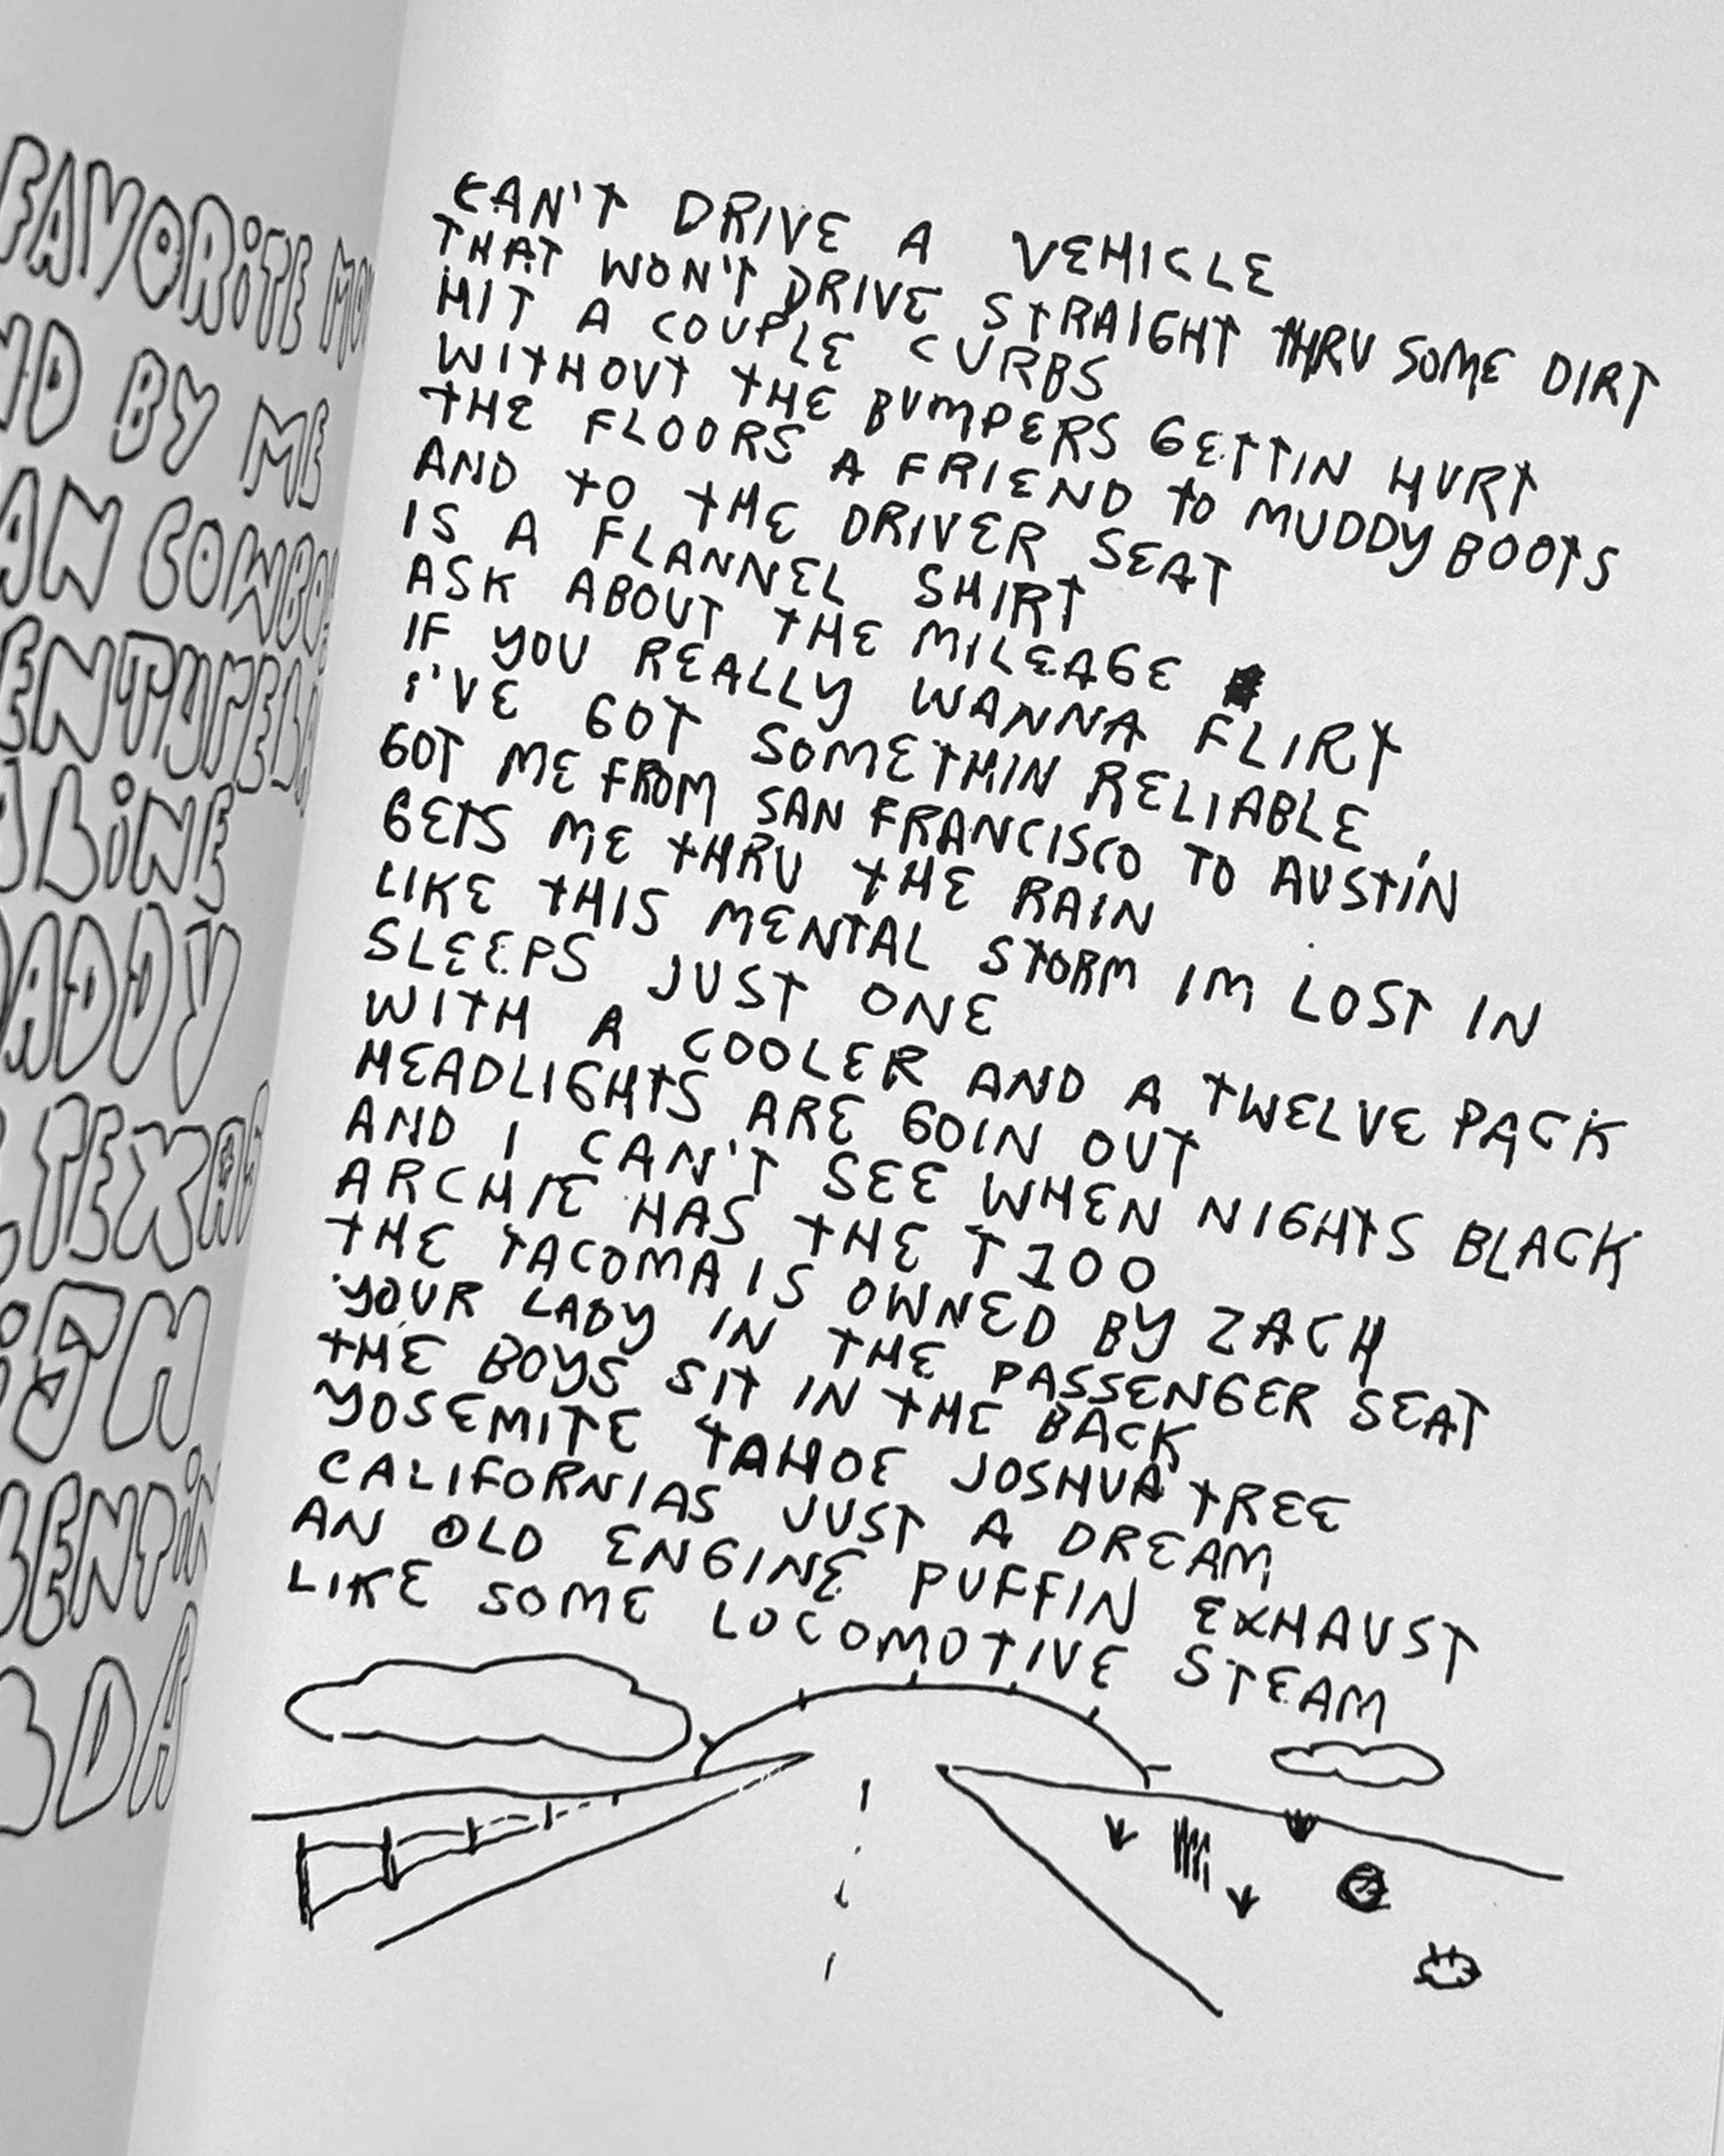 FAVORITE
BY ME
LINE
CAN'T DRIVE A VEHICLE
THAT WON'T DRIVE STRAIGHT THRU SOME DIRT
HIT A COUPLE CURBS
WITHOUT THE BUMPERS GETTIN HURT
THE FLOORS A FRIEND TO MUDDY BOOTS
AND TO THE DRIVER SEAT
IS A FLANNEL SHIRT
ASK ABOUT THE MILEAGE
IF YOU REALLY WANNA FLIRT
I'VE GOT SOMETHIN RELIABLE,
GOT ME FROM SAN FRANCISCO TO AUSTIN
GETS ME THRU THE RAIN
LIKE THIS MENTAL STORM IM LOST IN
SLEEPS JUST ONE
WITH A COOLER AND A TWELVE PACK
HEADLIGHTS ARE GOIN OUT
AND I CAN'T SEE WHEN NIGHTS BLACK
ARCHIE HAS THE T100
THE TACOMA IS OWNED BY ZACH
YOUR LADY IN THE PASSENGER SEAT
THE BOYS SIT IN THE BACK
YOSEMITE TAHOE JOSHUA TREE
CALIFORNIAS JUST A DREAM
AN OLD ENGINE PUFFIN EXHAUST
LIKE SOME LOCOMOTIVE STEAM